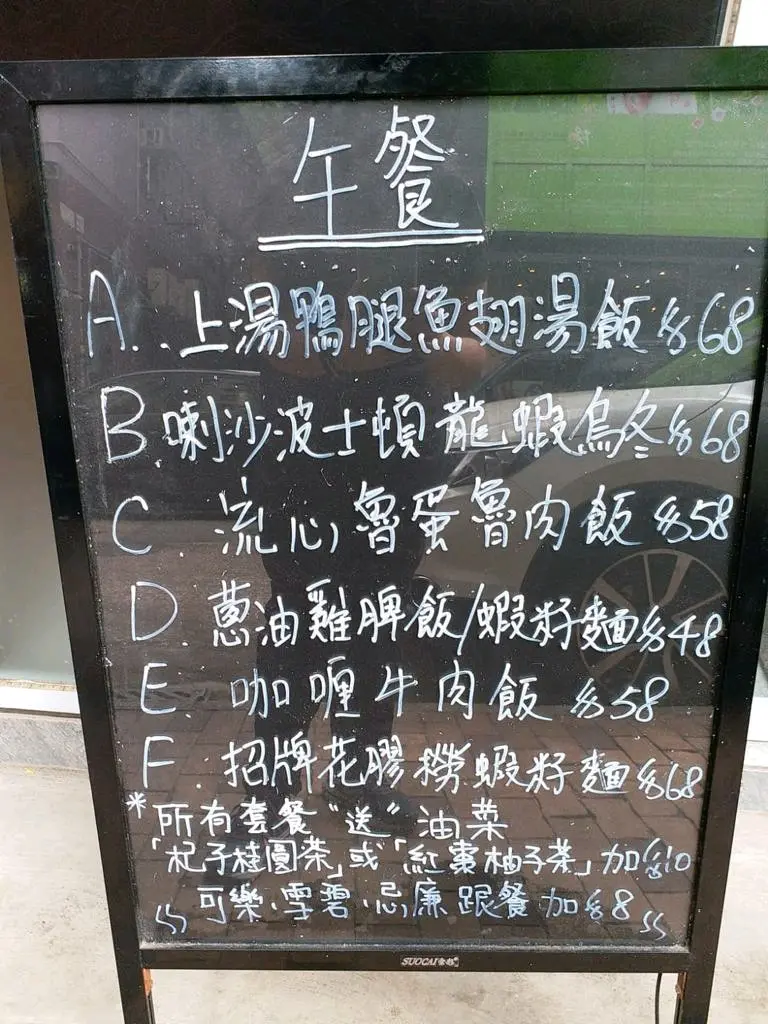 午餐
A. 上湯鴨腿魚翅湯飯 $68
B 喇沙波士頓龍蝦烏冬 $68
C. 流心魯蛋魯肉飯 $58
D. 蔥油雞脾飯/蝦籽麵 $48
E. 咖喱牛肉飯 $58
F. 招牌花膠撈蝦籽麵 $68
*所有套餐"送"油菜
「杞子桂圓茶」或「紅棗柚子茶」加$10
可樂.雪碧.忌廉 跟餐加$8
SUOCAI